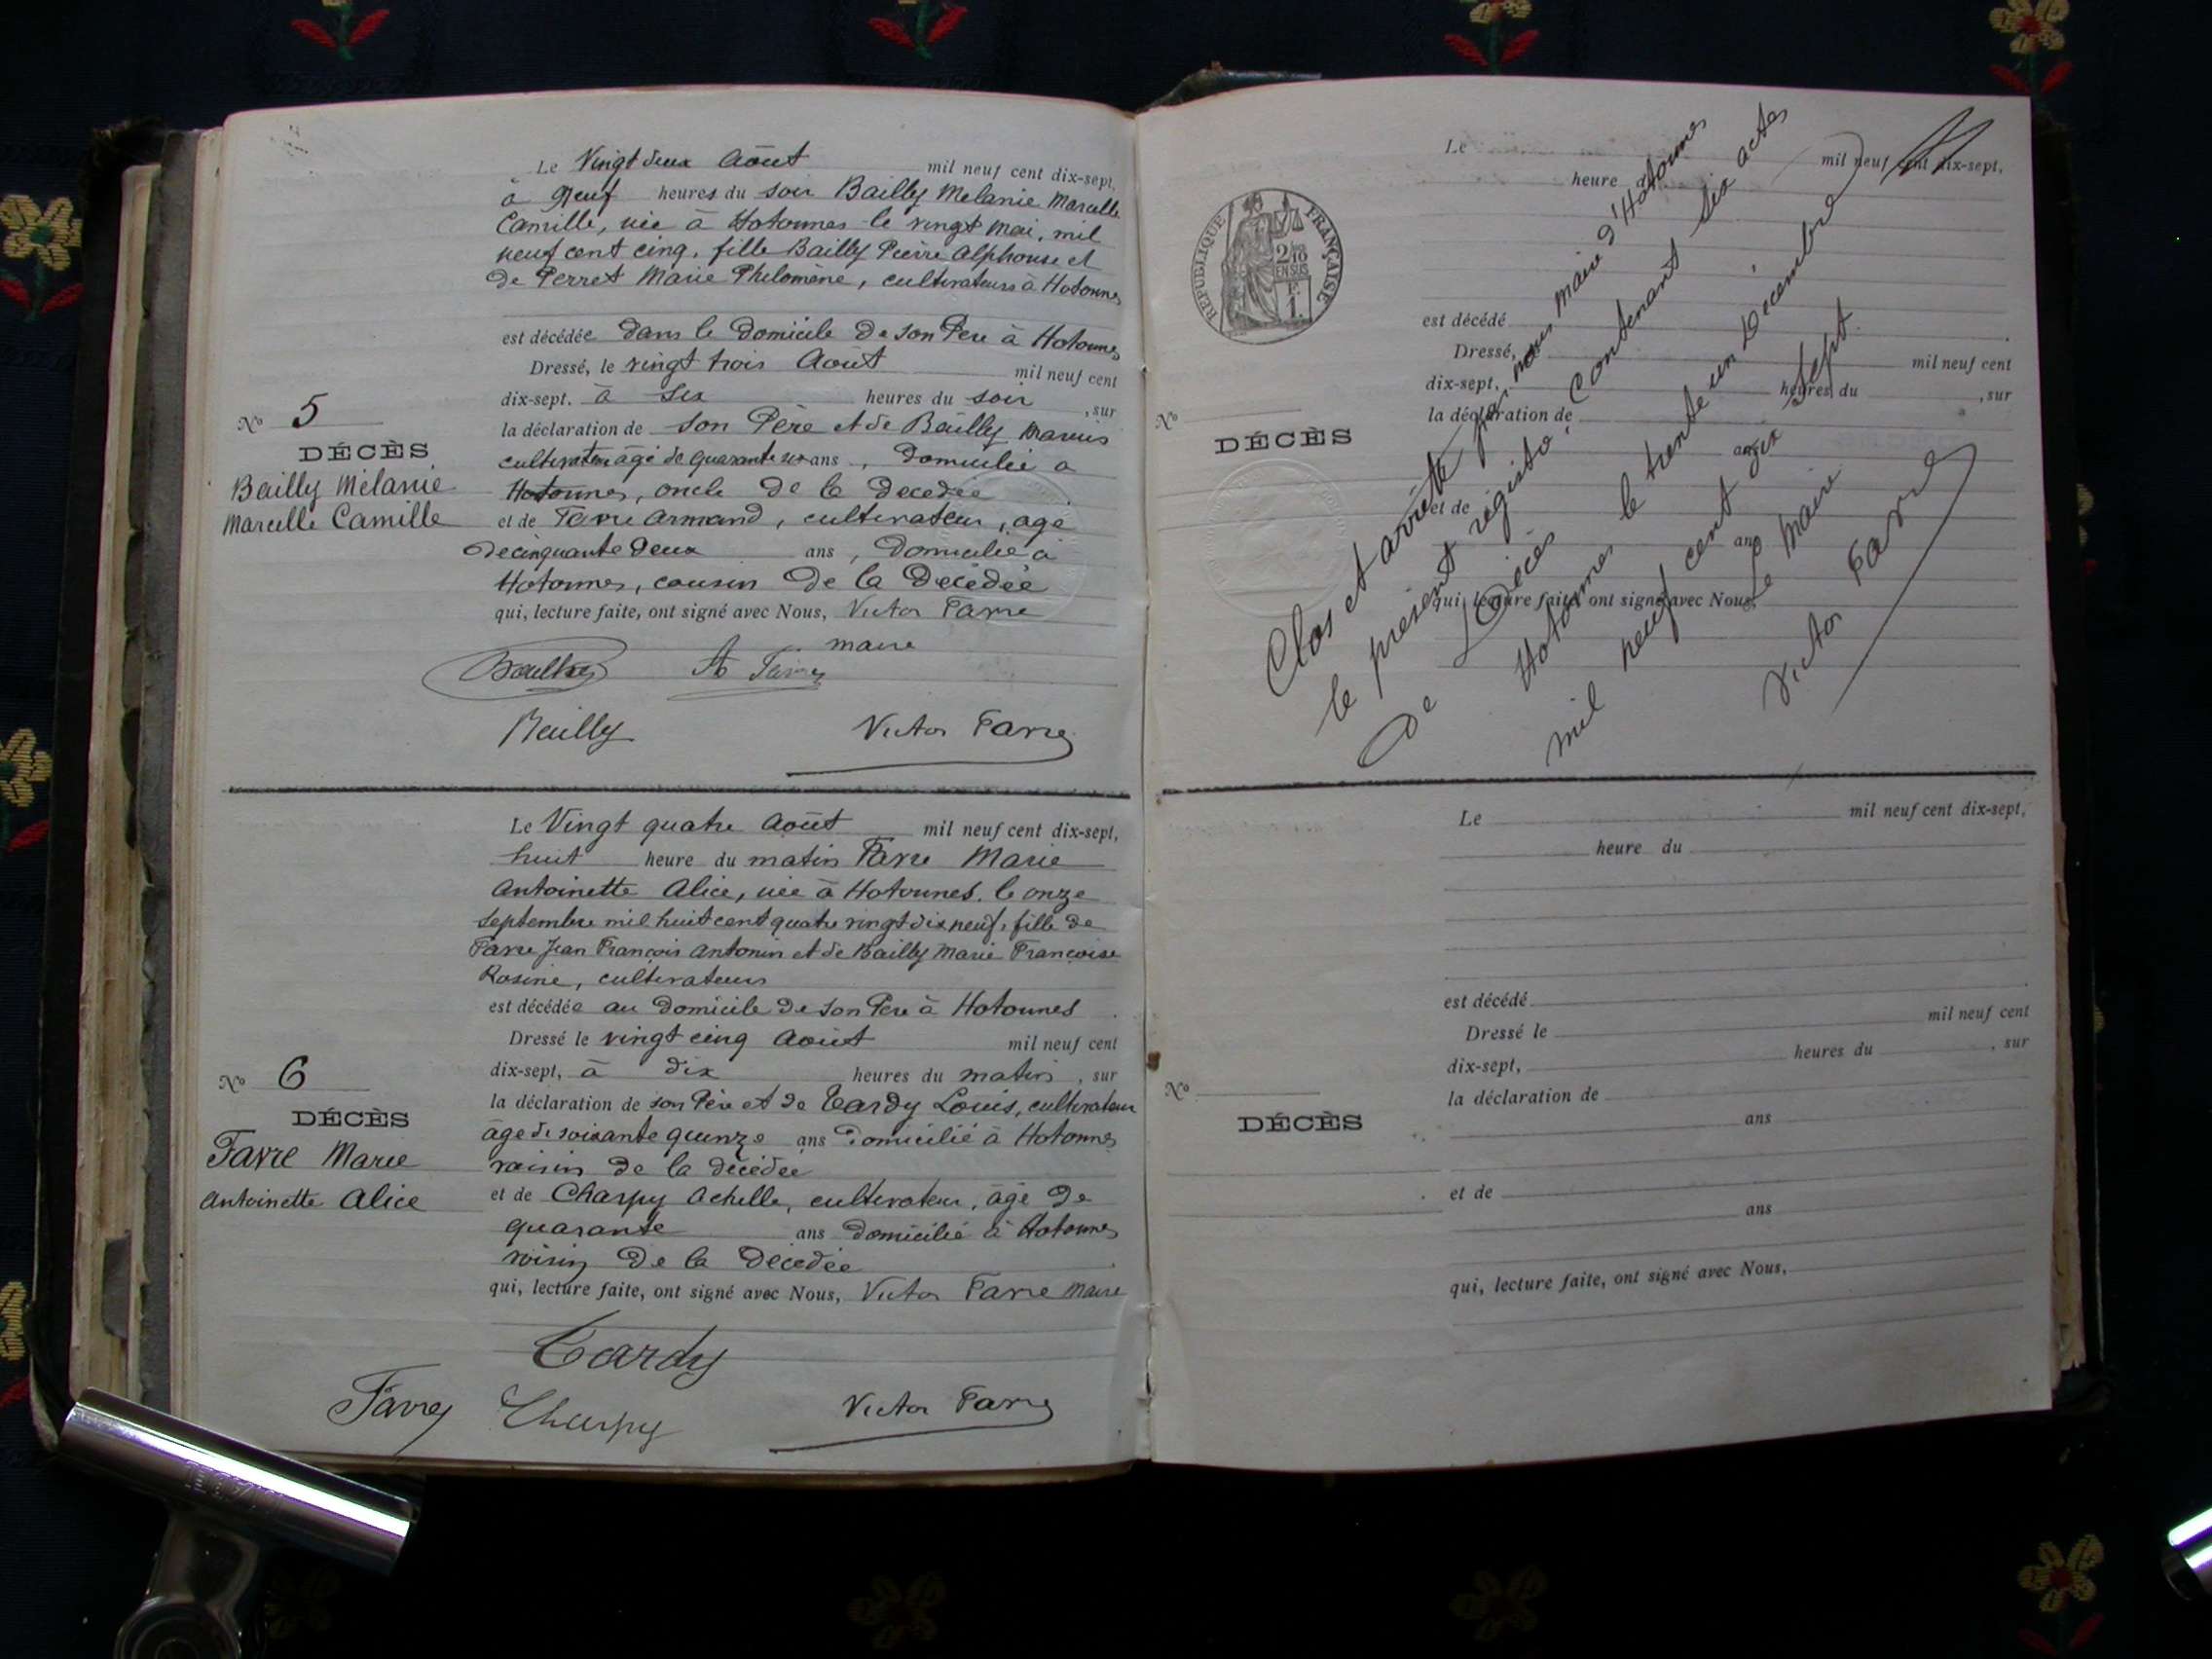 Le Vingt deux Août mil neuf cent dix-sept,
à Neuf heures du soir Bailly Mélanie Marcelle
Camille, née à Hotonnes le vingt mai, mil
neuf cent cinq, fille Bailly Pierre Alphonse et
de Perret Marie Philomène, cultivateurs à Hotonnes
est décédée dans le domicile de son Père à Hotonnes
Dressé, le vingt trois Août mil neuf cent
dix-sept. à six heures du soir, sur
No 5
la déclaration de son Père et de Bailly Marius
DÉCÈS
cultivateur âgé de quarante six ans, domicilié à
Bailly Mélanie
Hotonnes, oncle de la décédée
Marcelle Camille
et de Favre Armand, cultivateur, âgé
de cinquante deux ans, domicilié à
Hotonnes, cousin de la décédée
qui, lecture faite, ont signé avec Nous, Victor Favre
maire
A Favre
Bailly Victor Favre
Le Vingt quatre Août mil neuf cent dix-sept,
huit heure du matin Favre Marie
Antoinette Alice, née à Hotonnes. le onze
septembre mil huit cent quatre vingt dix neuf, fille de
Favre Jean François Antonin et de Bailly Marie Françoise
Rosine, cultivateurs
est décédée au domicile de son Père à Hotonnes
Dressé le vingt cinq Août mil neuf cent
No 6
dix-sept, à dix heures du matin, sur
DÉCÈS
la déclaration de son Père et de Tardy Louis, cultivateur
Favre Marie
âgé de soixante quinze ans domicilié à Hotonnes
voisin de la décédée
Antoinette Alice
et de Charpy Achille, cultivateur, âgé de
quarante ans domicilié à Hotonnes
voisin de la décédée
qui, lecture faite, ont signé avec Nous, Victor Favre Maire
Tardy
Favre Charpy Victor Favre
Le mil neuf cent dix-sept,
heure du
REPUBLIQUE FRANÇAISE
2/10 EN SUS
F. 1.
est décédé
Dressé, le mil neuf cent
dix-sept, heures du , sur
No
la déclaration de
DÉCÈS
ans
et de
ans
qui, lecture faite, ont signé avec Nous,
Clos et arrêté par nous maire d'Hotonnes
le présent registre contenant six actes
de Décès le trente un Décembre
mil neuf cent dix sept.
Hotonnes
Le Maire
Victor Favre
Le mil neuf cent dix-sept,
heure du
est décédé
Dressé le mil neuf cent
dix-sept, heures du , sur
No
la déclaration de
DÉCÈS
ans
et de
ans
qui, lecture faite, ont signé avec Nous,